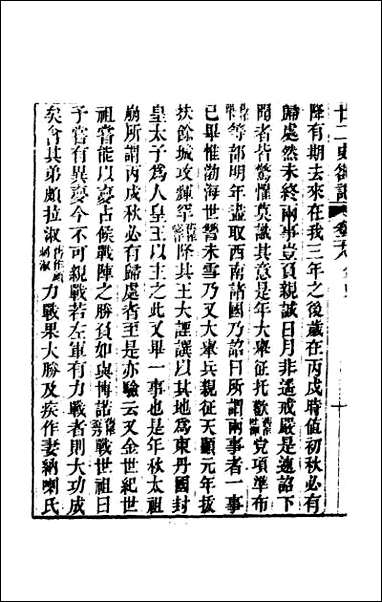 廿二史劄記
降有期去來在我三年之後歲在丙戌時值初秋必有
歸處然未終兩事豈負親誠日月非遙戒嚴是速詔下
聞者皆驚懼莫識其意是年大舉征托歡党項準布
等部明年盡取西南諸國乃詔曰所謂兩事者一事
已畢惟渤海世讐未雪乃又大舉兵親征天顯元年拔
扶餘城攻輝罕降其王大諲譔以其地為東丹國封
皇太子為人皇王以主之此又畢一事也是年秋太祖
崩所謂丙戌秋必有歸處者至是亦驗云又金世紀世
祖嘗能以夢占候戰陣之勝負如與博諾戰世祖曰
予嘗有異夢今不可親戰若左軍有力戰者則大功成
矣命其弟頗拉淑舊作頗剌淑力戰果大勝及疾作妻納喇氏